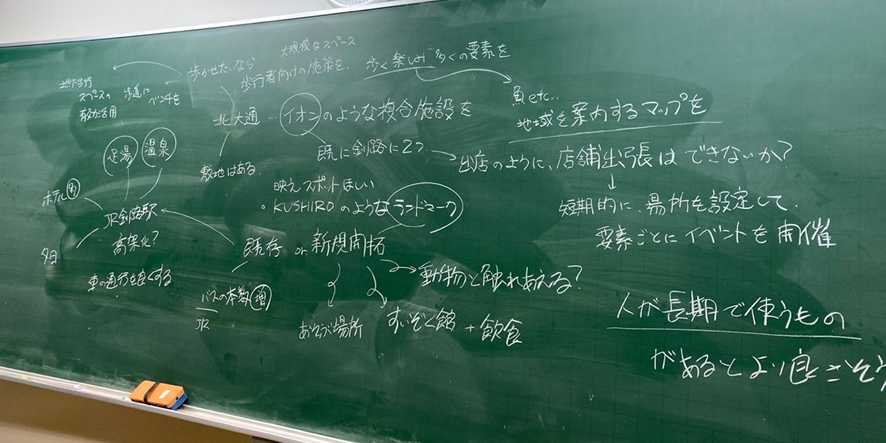 大規模なスペース
歩かせたいなら 歩行者向けの施策を、歩く楽しみ 多くの要素を
歩道に
ベンチを
スペースの
北大通 … イオンのような複合施設を
負 etc..
地域を案内するマップを
足湯 温泉
敷地はある
既に釧路に2つ
出店のように、店舗出張はできないか?
短期的に、場所を設定して、
要素ごとにイベントを開催
映えスポットほしい
KUSHIROのようなランドマーク
ホテル 多
JR釧路駅
高架化?
車の通行を良くする
夕日
既存 or 新規開拓
バスの本数 増
JR
あそび場所
すいぞく館 + 飲食
動物と触れあえる?
人が長期で使うもの
があるとより良さそう